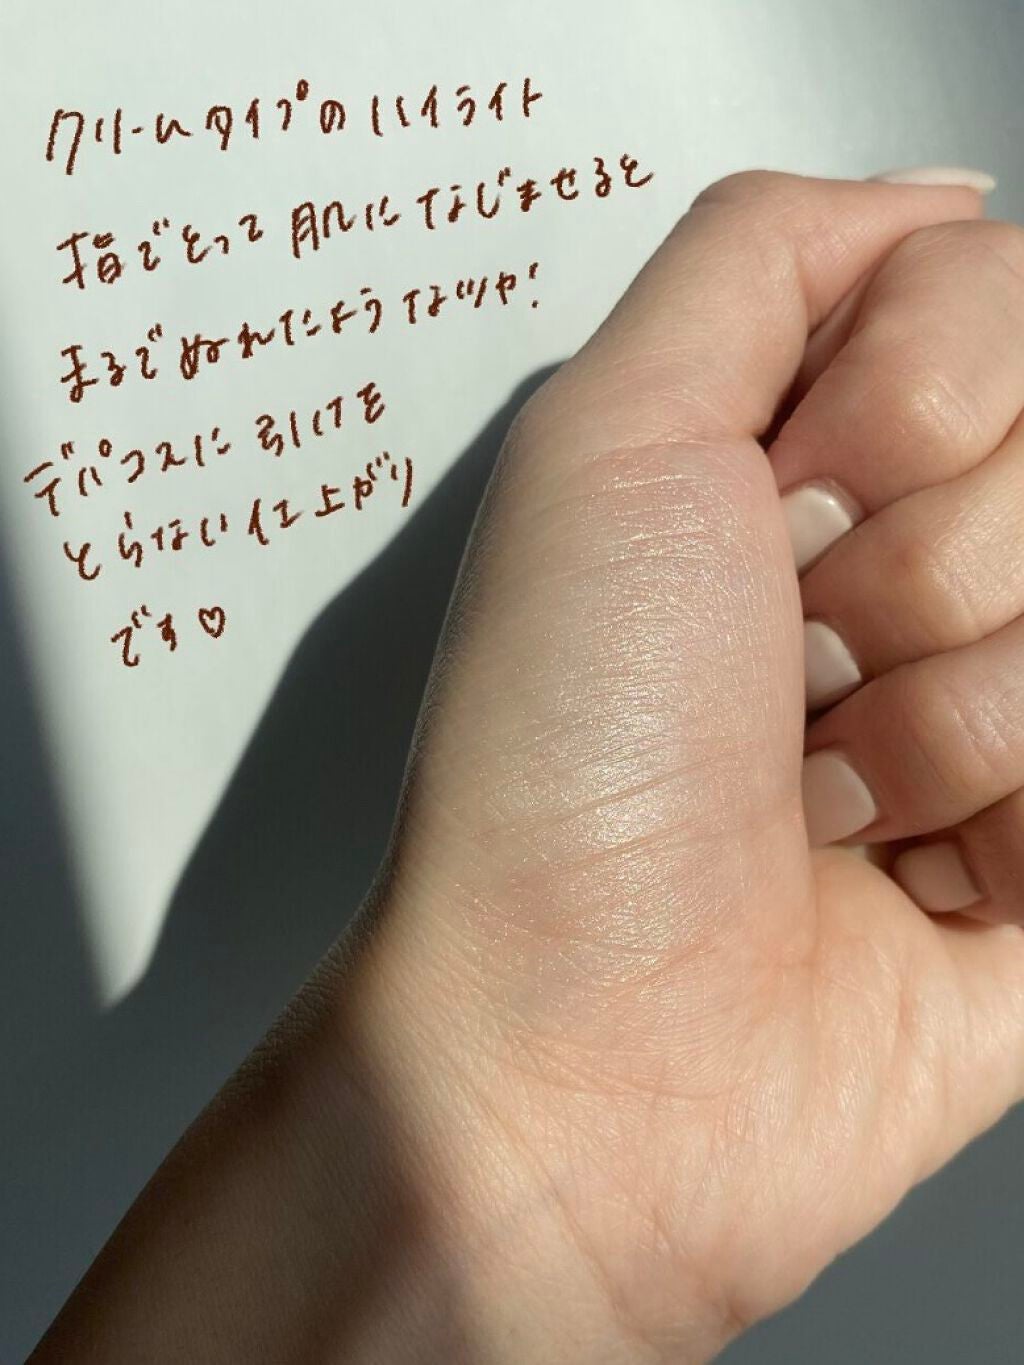 クリームタイプのハイライト
指でとって肌になじませると
まるでぬれたようなツヤ!
デパコスに引けを
とらない仕上がり
です♡